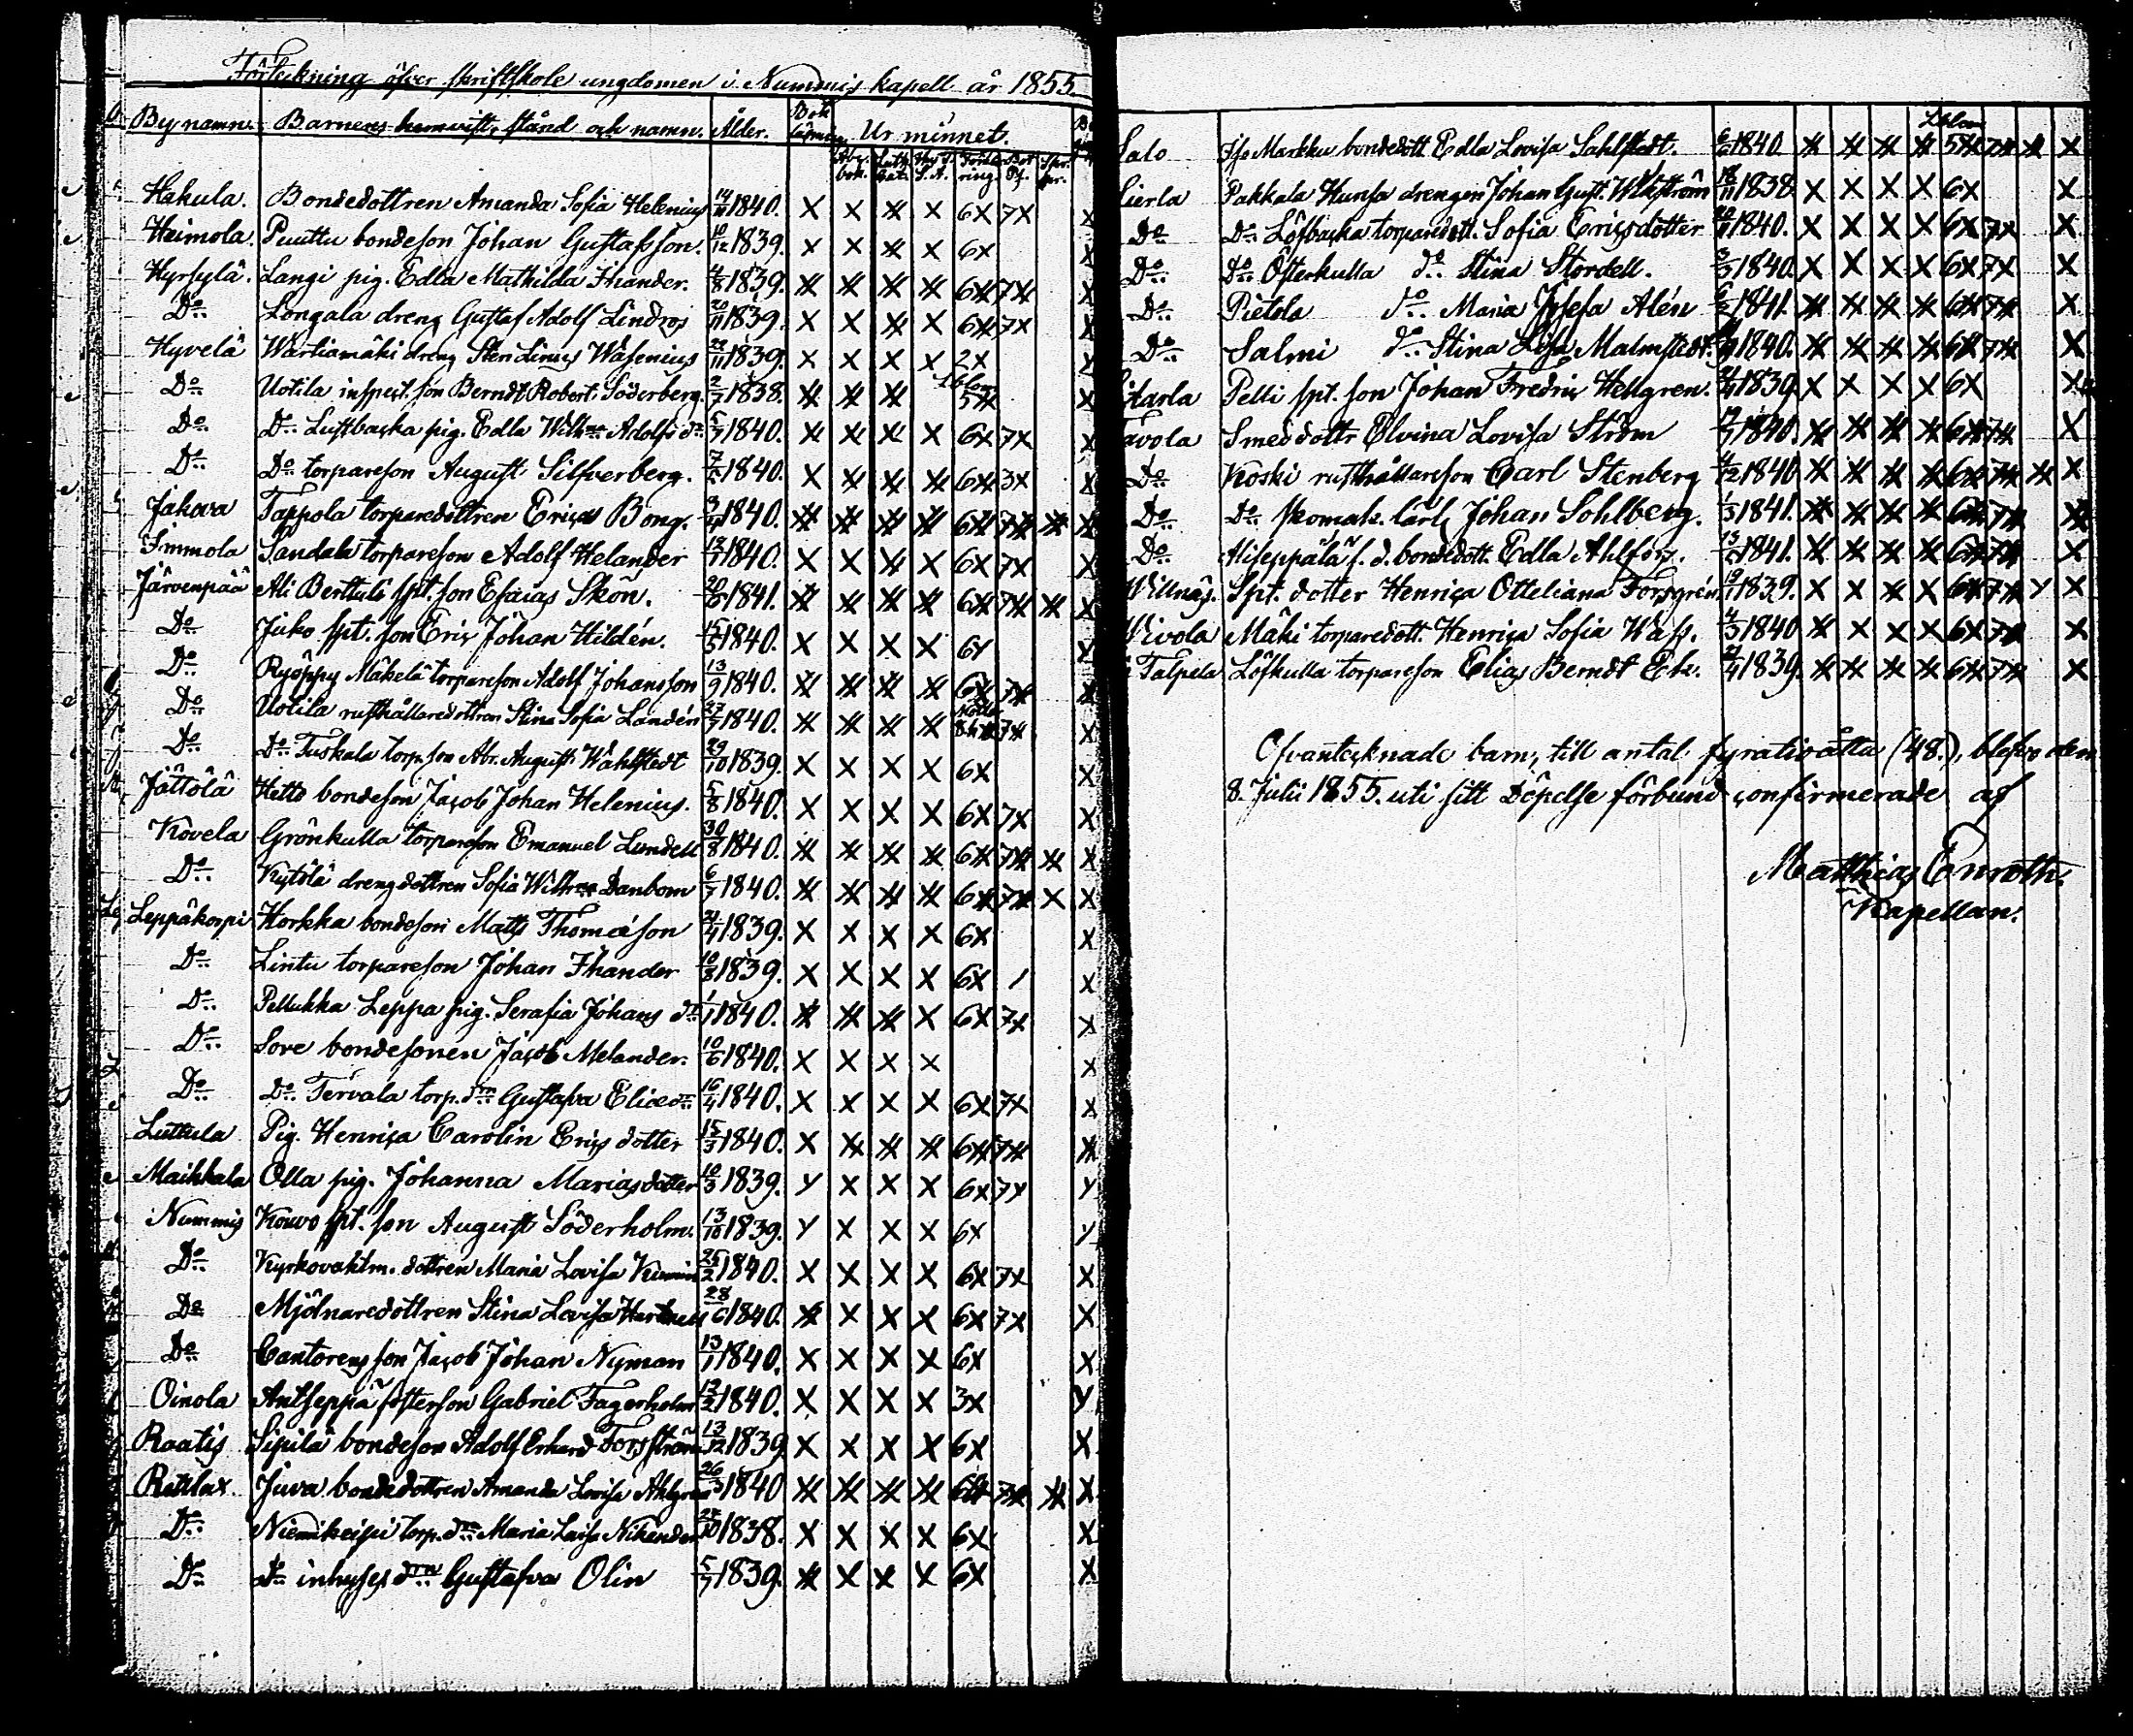 Förteckning öfver skriftskole ungdomen i Nummis kapell år 1855.
By namn. Barnens hemvist, stånd och namn. Ålder. Bok Ur minnet.
Hakula. Bondedottren Amanda Sofia Helenius 1840. X X X 6X 7X X
Heimola. Puuttu bondeson Johan Gustafsson. 10/12 1839. X X X X 6X
Hyrsylä. Langi pig. Edla Mathilda Thander. 4/8 1839.
Do Longala dreng Gustaf Adolf Lindros 20/11 1839.
Hyvelä Wartiamäki dreng Sten Linus Wasenius 22/11 1839. X X X X 2X
Do Uotila inspect. son Berndt Robert Söderberg. 2/7 1838.
Do Do Luftbacka pig. Edla Adolfs dr 1840.
Do Do torpareson August Silfverberg. 1840.
Jakova Tappola torparedottren Erica Bong. 1840.
Immola Sandala torpareson Adolf Helander 1840.
Järvenpää Ali Berttula spt. son Esaias Skön. 1841.
Do Juko spt. son Eric Johan Hildén. 1840. X X X X
Do Ryöppy Mäkelä torpareson Adolf Johansson 13/9 1840.
Do Uotila rusthållaredottren Stina Sofia Landén 27/7 1840.
Do Do Tuskala torp. son Abr. August Wahlstedt 29/10 1839. X X X X 6X
Jättölä Hetto bondeson Jacob Johan Helenius. 5/8 1840. X X X X 6X 7X
Kovela Grönkulla torpareson Emanuel Lundell 30/8 1840.
Do Kytölä drengdottren Sofia Danbom 6/7 1840.
Leppäkorpi Horkka bondeson Matts Thomæson 21/4 1839. X X X X 6X X
Do Lintu torpareson Johan Thander 10/8 1839. X X X X 6X / X
Do Pellukka Leppa pig. Serafia Johans dr 1/1 1840.
Do Sore bondesonen Jacob Melander. 10/6 1840. X X X X X
Do Do Tervala torp. drn Gustafva Eliædr 16/4 1840. X X X X 6X 7X X
Luttula Pig. Henrica Carolin Ericsdotter 15/3 1840.
Maikkala Olla pig. Johanna Mariasdotter 10/3 1839.
Nummis Kouvo spt. son August Söderholm. 13/10 1839.
Do Kyrkovaktm. dottren Maria Lovisa 25/2 1840. X X X X 6X 7X X
Do Mjölnaredottren Stina Lovisa 28/6 1840.
Do Cantorens son Jacob Johan Nyman 13/1 1840. X X X X 6X X
Oinola Antseppä fosterson Gabriel Fagerholm 12/2 1840. X X X X 3X
Raatis Sipilä bondeson Adolf Erhard Forsström 13/12 1839 X X X X 6X X
Retlax Juva bondedottren Amanda Lovisa Ahlgren 1840
Do Niemikeipi torp. drn Maria Lovisa Nikander 1838. X X X X 6X X
Do Do inhyses drn Gustafva Olin 5/7 1839.
Salo Iso Markku bondedott. Edla Lovisa Sahlstedt. 1840
Sierla Pakkala Hunsa drengen Johan Gust. Wikström 18/11 1838 X X X X 6X X
Do Do Löfbacka torparedott. Sofia Ericsdotter 1840. X X X X 6X 7X X
Do Do Österkulla do Stina Stordell. 3/3 1840 X X X X 6X 7X X
Do Pietola do Maria Josefa Alén 1841.
Do Salmi do Stina Lisa Malmstedt. 1840.
Sitarla Pelli spt. son Johan Fredric Hellgren. 1839 X X X X 6X
Tavola Smeddottr Elvina Lovisa Ström 1840.
Do Koski rusthållareson Carl Stenberg 1840
Do Do skomak. lärl. Johan Sohlberg. 1/3 1841.
Do Hiiseppälä f. d. bondedott. Edla Ahlfors. 1841.
Willnäs. Spt. dotter Henrica Otteliana Forsgrén 1839.
Wivola Mäki torparedott. Henrica Sofia Wass. 4/3 1840
Talpela Löfkulla torpareson Elias Berndt Ek. 1839.
Ofvantecknade barn, till antal fyratioåtta (48.), blefvo den
8. Julii 1855. uti sitt Döpelse förbund confirmerade af
Matthias Enroth.
Kapellan.